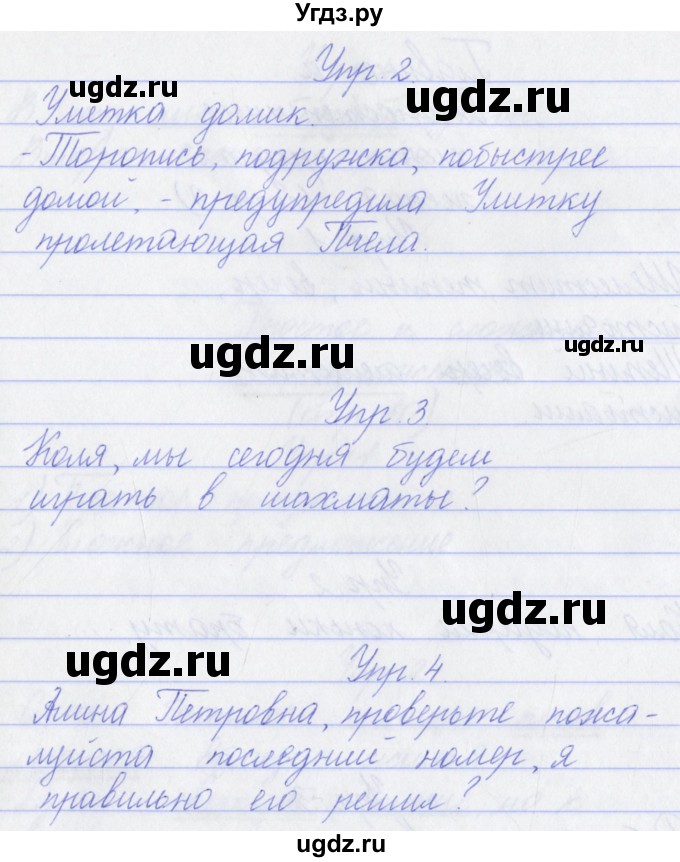 Угдз.ру
Упр. 2.
Улитка домик.
- Торопись, подружка, побыстрее
домой, - предупредила Улитку
пролетающая Пчела.
Упр. 3
Коля, мы сегодня будем
играть в шахматы?
Упр. 4
Алина Петровна, проверьте пожа-
луйста последний номер, я
правильно его решил?
ugdz.ru
ugdz.ru
ugdz.ru
ugdz.ru
ugdz.ru
ugdz.ru
ugdz.ru